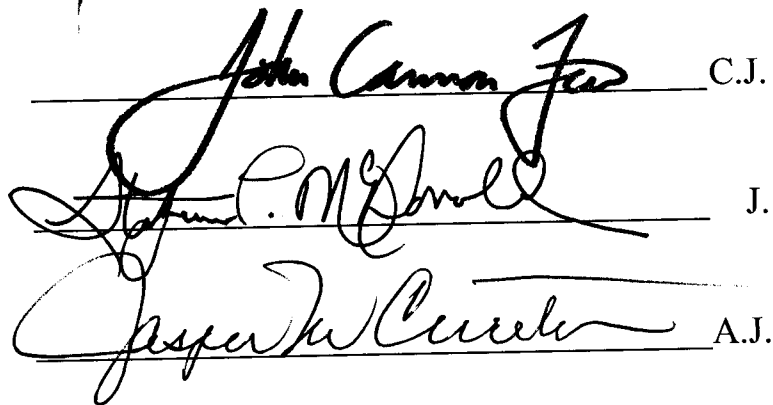 John Cannon Few C.J.
P. McDonald J.
Jasper M Cureton A.J.